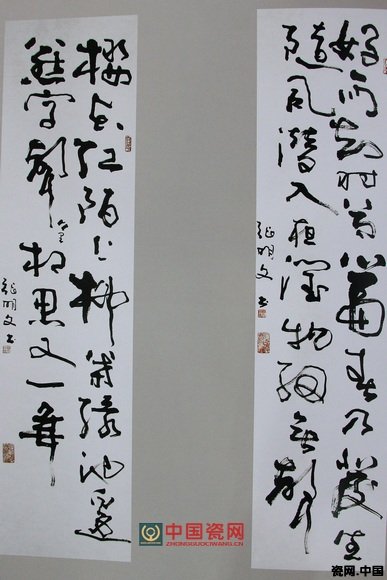 好雨知时节當春乃發生
随风潜入夜潤物细無聲
张明文书
樱花红陌上柳葉绿池邊
燕子聲聲里相思又一年
张明文书
中国瓷网
ZHONGGUOCIWANG.CN
瓷网.中国